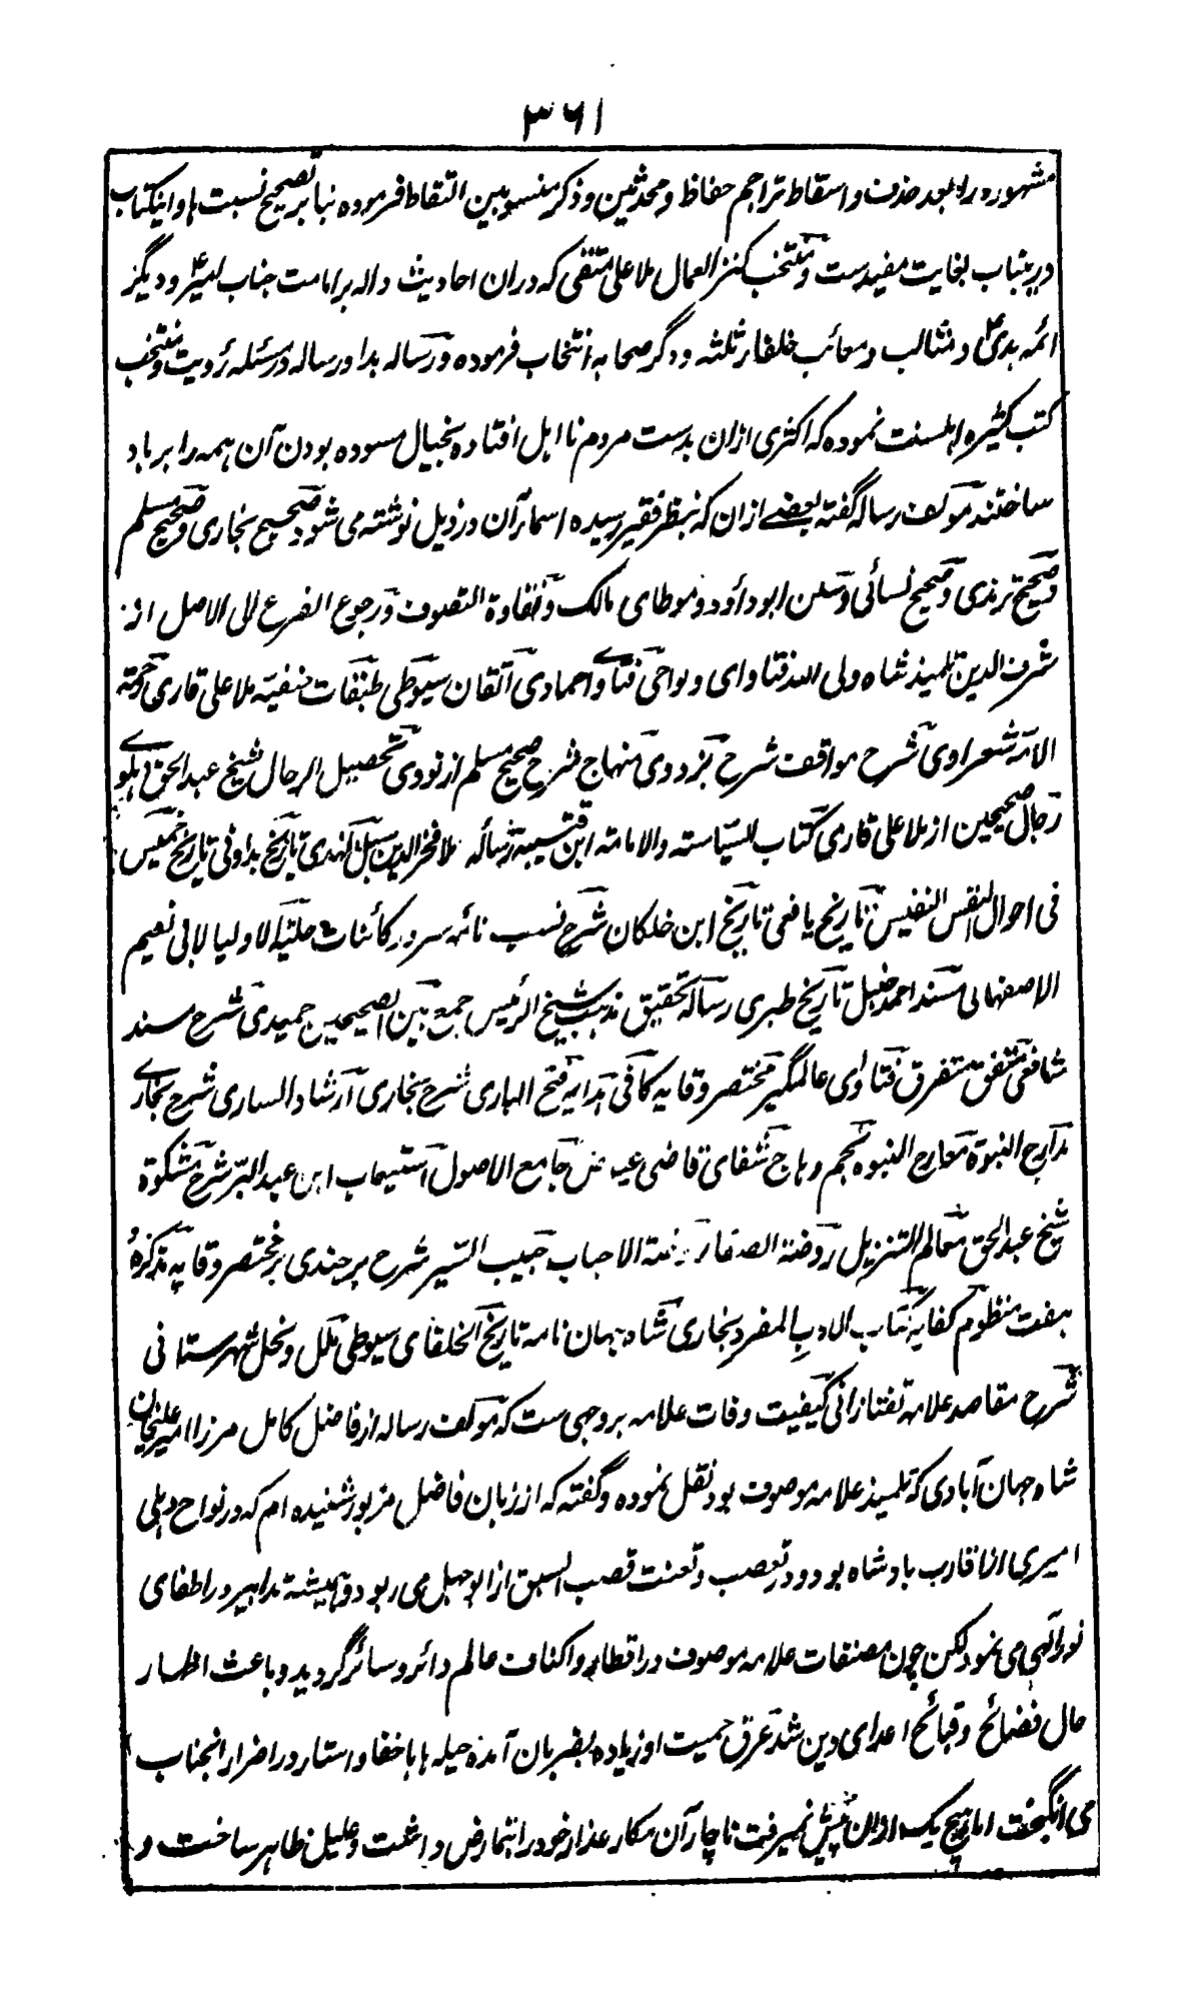 ۳۶۱
مشهوره را بعد حذف و اسقاط تراجم حفاظ و محدثین و ذکر منسوبین التقاط فرموده بنا بر تصحیح نسبت ها و اینکتاب
درینباب بغایت مفیدست و منتخب کنز العمال ملا علی متقی که دران احادیث داله بر امامت جناب امیر۴ و دیگر
ائمه هدی۴ و مثالب و معائب خلفاء ثلثه و دگر صحابه انتخاب فرموده و رساله بدا و رساله در مسئله رویت و منتخب
کتب کثیره اهلسنت نموده که اکثری ازان بدست مردم نا اهل افتاده بخیال مسوده بودن آن همه را برباد
ساختند مولف رساله گفته بعضے ازان که بنظر فقیر رسیده اسماء آن در ذیل نوشته می شود صحیح بخاری و صحیح مسلم
و صحیح ترمذی و صحیح نسائی و سنن ابو داؤد و موطای مالک و نقاوة التصوف و رجوع الفرع الی الاصل از
شرف الدین تلمیذ شاه ولی الله فتاوای ولواجی فتاوے حمادی اتقان سیوطی طبقات حنفیه ملا علی قاری رحمته
الامه شعراوی شرح مواقف شرح بزدوی منهاج شرح صحیح مسلم از نووی تحصیل الرجال شیخ عبد الحق دهلوے
رجال صحیحین از ملا علی قاری کتاب السیاسته والامامته ابن قتیبه رساله ملا فخر الدین تاریخ بداونی تاریخ خمیس
فی احوال النفس النفیس تاریخ یافعی تاریخ ابن خلکان شرح نسب نامه سرور کائنات حلیة الاولیا لابی نعیم
الاصفهانی مسند احمد حنبل تاریخ طبری رساله تحقیق مذهب شیخ الرئیس جمع بین الصحیحین حمیدی شرح مسند
شافعی متفق متفرق فتاوای عالمگیر مختصر وقایه کافی هدایه فتح الباری شرح بخاری ارشاد الساری شرح بخارے
مدارج النبوة معارج النبوه نجم وهاج شفای قاضی عیاض جامع الاصول استیعاب ابن عبد البر شرح مشکوة
شیخ عبد الحق معالم التنزیل روضة الصفا روضة الاحباب حبیب السیر شرح برجندی بر مختصر وقایه تذکرهٔ
هفت منظوم کفایه کتاب الادب المفرد بخاری شاه جهان نامه تاریخ الخلفای سیوطی ملل و نحل شهرستانی
شرح مقاصد علامه تفتازانی کیفیت وفات علامه بروجهی ست که مولف رساله از فاضل کامل مرزا امیر علیخان
شاه جهان آبادی که تلمیذ علامه موصوف بود نقل نموده و گفته که از زبان فاضل مزبور شنیده ام که در نواح دهلی
امیری از اقارب بادشاه بود و در تعصب و تعنت قصب السبق از ابو جهل می ربود و همیشه تدابیر در اطفای
نور الهی می نمود لکن چون مصنفات علامه موصوف در اقطار و اکناف عالم دائر و سائر گردید و باعث اظهار
حال فضائح و قبائح اعدای دین شد عرق حمیت او زیاده بضربان آمده حیله ها باخفا و استتار در اضرار انجناب
می انگیخت اما هیچ یک ازان پیش نمیرفت ناچار آن مکار غدار خود را بتمارض داشت و علیل ظاهر ساخت و